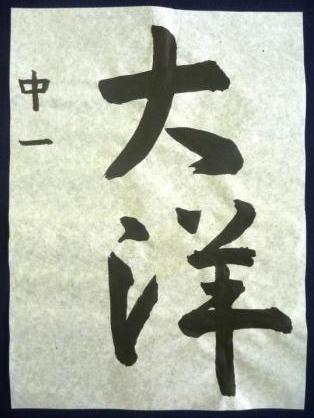 大洋
中一